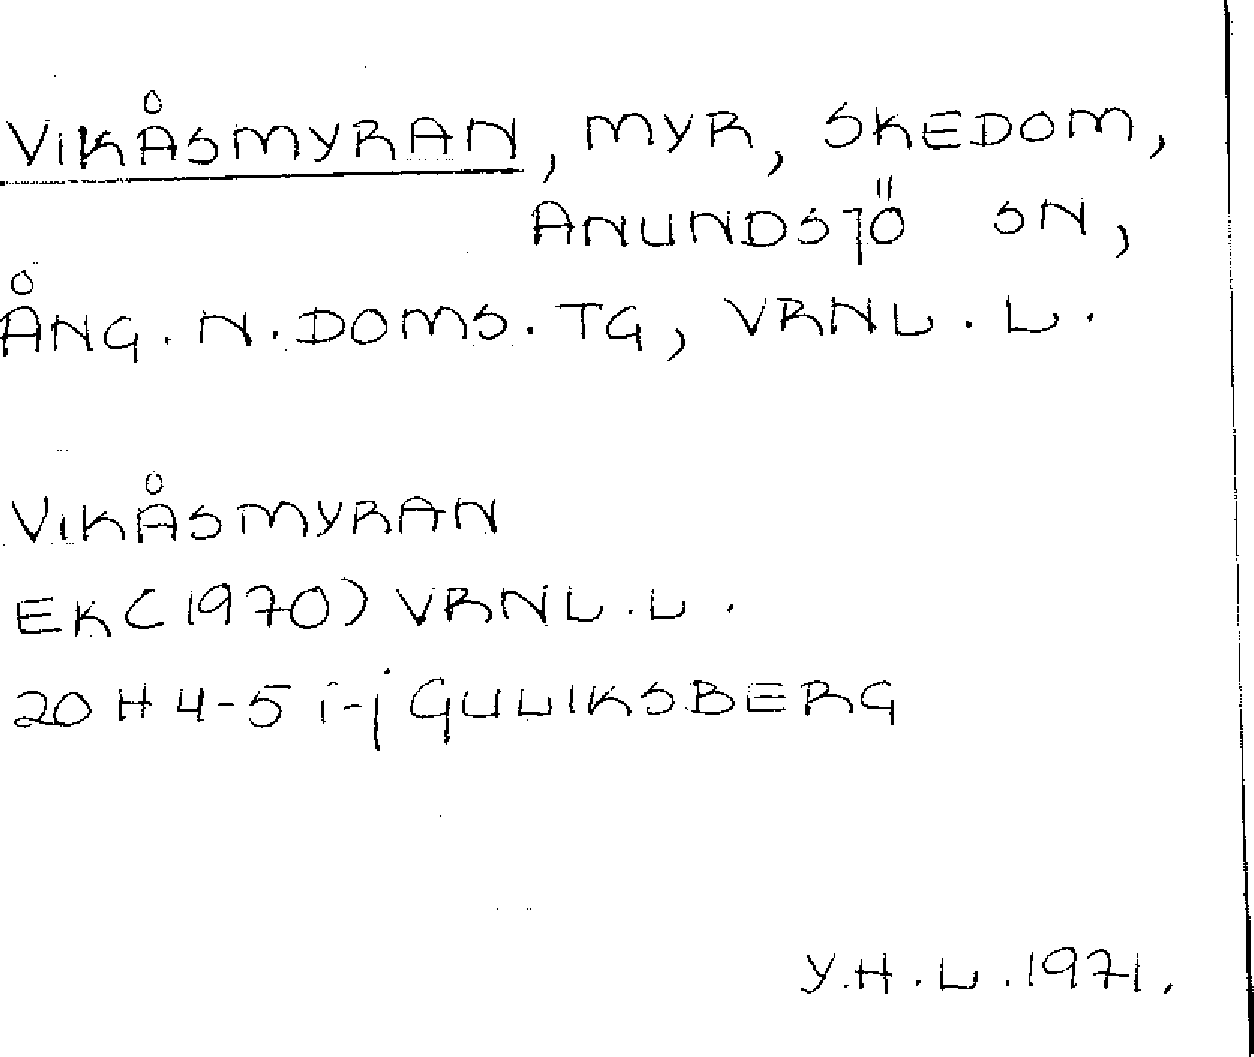 VIKÅSMYRAN, MYR, SKEDOM,
ANUNDSJÖ SN,
ÅNG. N. DOMS. TG, VRNL. L.
VIKÅSMYRAN
EK (1970) VRNL. L.
20 H 4-5 i-j GULIKSBERG
Y.H.L. 1971.